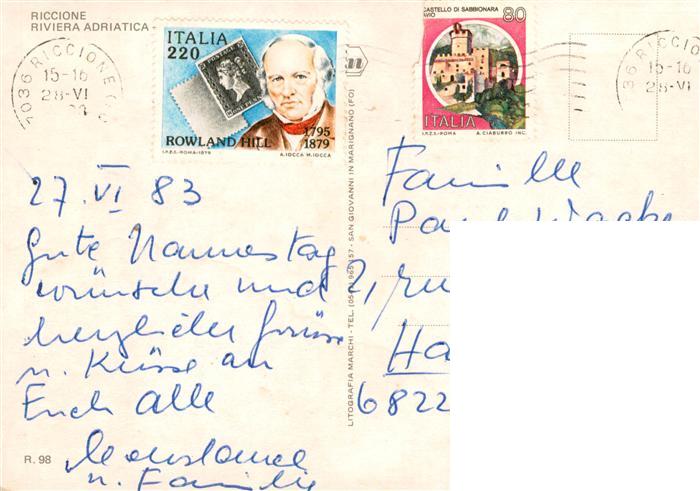 RICCIONE
RIVIERA ADRIATICA -
47036 RICCIONE (FO)
15-16
28-VI
ITALIA
220
POSTAGE
ONE PENNY
ROWLAND HILL
1795
1879
I.P.Z.S.-ROMA-1979
A.IOCCA M.IOCCA
CASTELLO DI SABBIONARA
AVIO
80
ITALIA
I.P.Z.S.-ROMA
A. CIABURRO INC.
36 RICCIO
15-16
28-VI
27.VI 83
Gute Namenstag
wünsche und
herzliche Grüsse
u. Küsse an
Euch alle
Constance
u. Familie
R. 98
LITOGRAFIA MARCHI - TEL. (0541) 965157 - SAN GIOVANNI IN MARIGNANO (FO)
Famille
Paul
2, ru
Ha
6822